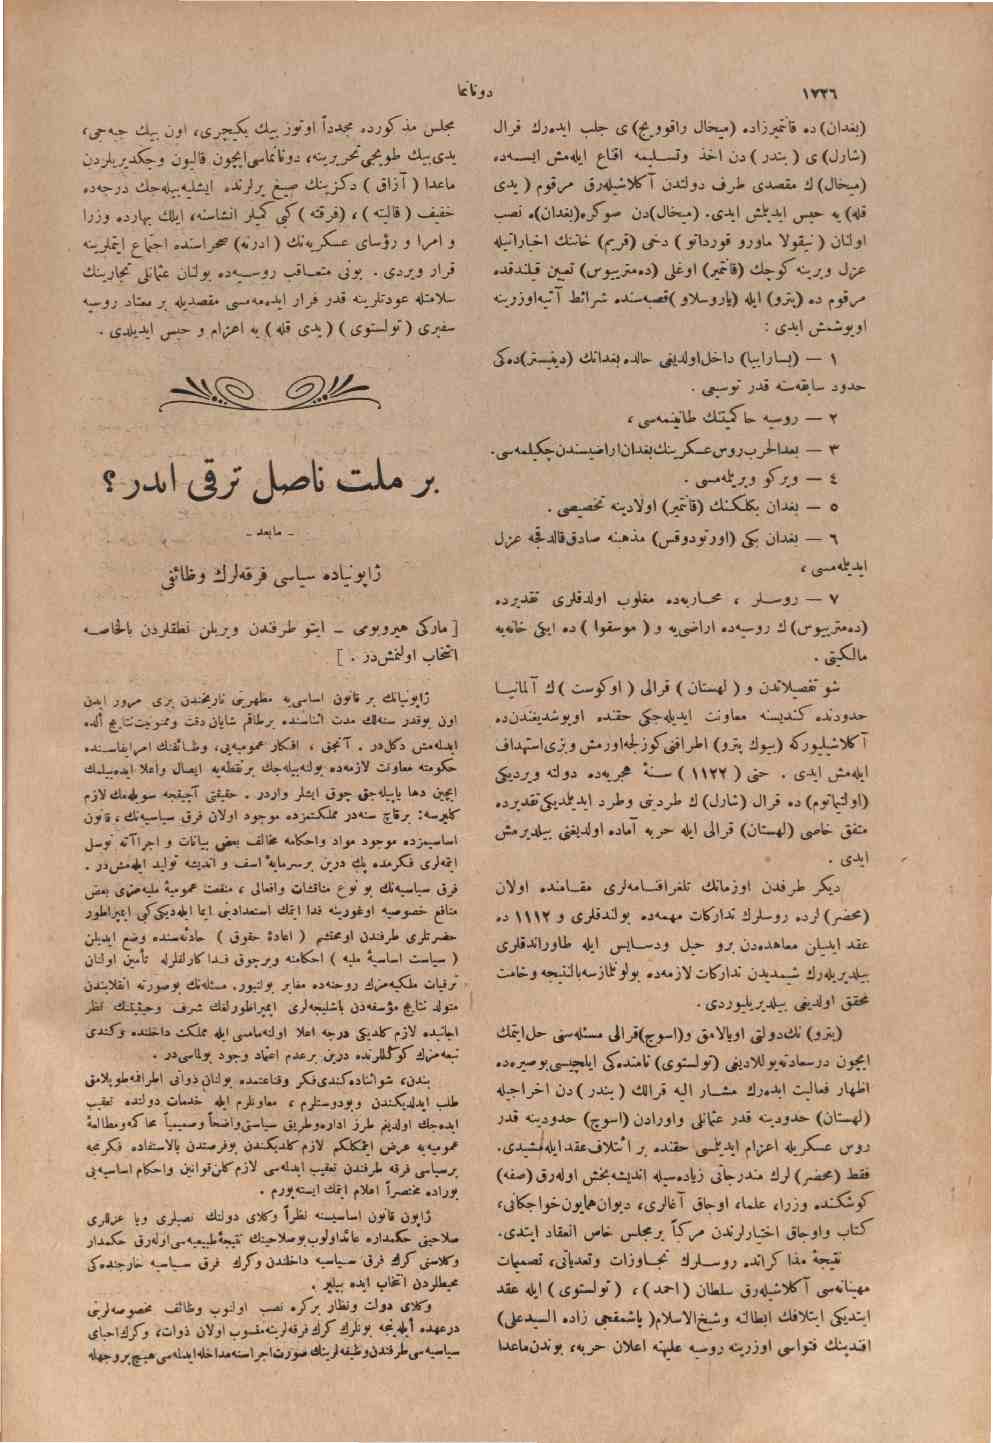 ١٧٢٦
دوناما
(بغدان) ده قانتميرزاده (ميخال راقوويج) ى جلب ايده‌رك قرال
(شارل) ى ( بندر ) دن اخذ وتسليمه اقناع ايله‌مش ايسه‌ده
(ميخال) ك مقصدى طرف دولتدن آكلاشيله‌رق مرقوم ( يدى
قله) يه حبس ايديلمش ايدى. (ميخال)دن صوكره(بغدان)ه نصب
اولنان ( نيقولا ماورو قورداتو ) دخى (قريم) خاننك اخباراتيله
عزل ويرينه كوچك (قانتمير) اوغلى (ده‌متريوس) تعيين قيلندقده
مرقوم ده (پترو) ايله (ياروسلاو )قصبه‌سنده شرائط آتيه‌اوزرينه
اويوشمش ايدى :
١ — (بسارابيا) داخل‌اولديغى حالده بغدانك (دينيستر)ده‌كى
حدود سابقه‌سنه قدر توسيعى .
٢ — روسيه حاكميتنك طانينمه‌سى ،
٣ — بعدالحرب‌روس‌عسكرينك‌بغدان‌اراضيسندن‌چكيلمه‌سى.
٤ — ويركو ويريلمه‌سى .
٥ — بغدان بكلكنك (قانتمير) اولادينه تخصيصى .
٦ — بغدان بكى (اورتودوقس) مذهبنه صادق‌قالدقجه عزل
ايديلمه‌مسى ،
٧ — روسلر ، محاربه‌ده مغلوب اولدقلرى تقديرده
(ده‌متريوس) ك روسيه‌ده اراضى‌يه و ( موسقوا ) ده ايكى خانه‌يه
مالكيتى .
شو تفصيلاتدن و ( لهستان ) قرالى ( اوكوست ) ك آلمانيا
حدودنده كنديسنه معاونت ايديله‌جكى حقنده اويوشديغندن‌ده
آكلاشيليوركه (بيوك پترو) اطرافنى‌كوزلجه‌اورمش وبزى‌استهداف
ايله‌مش ايدى . حتى ( ١١٢٢ ) سنۀ هجريه‌ده دولته ويرديكى
(اولتيماتوم) ده قرال (شارل) ك طردينى وطرد ايديلمديكى‌تقديرده
متفق خاصى (لهستان) قرالى ايله حربه آماده اولديغنى بيلديرمش
ايدى .
ديكر طرفدن اوزمانك تلغرافنامه‌لرى مقامنده اولان
(محضر) لرده روسلرك تداركات مهمه‌ده بولندقلرى و ١١١٢ ده
عقد ايديلن معاهده‌دن برو حيل ودسايس ايله طاوراندقلرى
بيلديريله‌رك شيمديدن تداركات لازمه‌ده بولونلمازسه‌بالنتيجه وخامت
محقق اولديغى بيلديريليوردى .
(پترو) نك‌دولتى اويالامق و(اسوج)قرالى مسئله‌سنى حل‌ايتمك
ايچون درسعادته‌يوللاديغى (تولستوى) نامنده‌كى ايلچيسى‌بوصيره‌ده
اظهار فعاليت ايده‌رك مشار اليه قرالك ( بندر ) دن اخراجيله
(لهستان) حدودينه قدر عثمانلى واورادن (اسوج) حدودينه قدر
روس عسكريله اعزام ايديلمسى حقنده بر ائتلاف عقد ايله‌مشيدى.
فقط (محضر) لرك مندرجاتى زياده‌سيله انديشه‌بخش اوله‌رق (صفه)
كوشكنده وزراء، علماء، اوجاق آغالرى، ديوان‌همايون‌خواجكانى،
كتاب واوجاق اختيارلرندن مركباً برمجلس خاص انعقاد ايتدى.
نتيجۀ مذاكراتده روسلرك تجاوزات وتعدياتى، تصميمات
مهينانه‌سى آكلاشيله‌رق سلطان (احمد) ، ( تولستوى ) ايله عقد
ايتديكى ايتلافك ابطالنه وشيخ‌الاسلام( پاشمقجى زاده السيدعلى)
افندينك فتواسى اوزرينه روسيه عليهنه اعلان حربه، بوندن‌ماعدا
مجلس مذكورده مجدداً اوتوز بيك يكيچرى، اون بيك جبه‌جى،
يدى‌بيك طوپجى‌تحريرينه، دونانماسى‌ايچون قاليون وچكديريلردن
ماعدا ( آزاق ) دكزينك صيغ يرلرنده ايشليه‌بيله‌جك درجه‌ده
خفيف ( قاليته ) ، (فرقته ) كبى كميلر انشاسنه، ايلك بهارده وزرا
و امرا و رؤساى عسكريه‌نك ( ادرنه) صحراسنده اجتماع ايتملرينه
قرار ويردى . بونى متعاقب روسيه‌ده بولنان عثمانلى تجارينك
سلامتله عودتلرينه قدر فرار ايده‌مه‌مسى مقصديله بر معتاد روسيه
سفيرى ( تولستوى ) ( يدى قله ) يه اعزام و حبس ايديلدى .
بر ملت ناصل ترقى ايدر ؟
ـ مابعد ـ
ژاپونياده سياسى فرقه‌لرك وظائفى
[ ماركى هيروبومى ـ ايتو طرفندن ويريلن نطقلردن بالخاصه
انتخاب اولنمشدر . ]
ژاپونيانك بر قانون اساسى‌يه مظهريتى تاريخندن برى مرور ايدن
اون بوقدر سنه‌لك مدت اثناسنده برطاقم شايان دقت وممنونيت‌نتايج ألده
ايدله‌مش دكل‌در . آنجق ، افكار عموميه‌يى، وظائفنك امر ايفاسنده
حكومته معاونت لازمه‌ده بولنه‌بيله‌جك برنقطه‌يه ايصال واعلا ايده‌بيلمك
ايچين دها ياپيله‌جق چوق ايشلر واردر. حقيقتى آچيقجه سويله‌مك لازم
كليرسه: برقاچ سنه‌در مملكتمزده موجود اولان فرق سياسيه‌نك ، قانون
اساسيمزده موجود مواد واحكامه مخالف بعض بيانات و اجراآته توسل
ايتمه‌لرى فكرمده پك درين برسرمايۀ اسف و انديشه توليد ايله‌مشدر .
فرق سياسيه‌نك بو نوع مناقشات وافعالى ، منفعت عموميۀ مليه‌مزى بعض
منافع خصوصيه اوغورينه فدا ايتمك استعدادينى ايما ايله‌ديكى‌كبى ايمپراطور
حضرتلرى طرفندن اومحتشم ( اعادۀ حقوق ) حادثه‌سنده وضع ايديلن
( سياست اساسيۀ مليه ) احكامنه وبرچوق فداكارلقلرله تأمين اولنان
ترقيات ملكيه‌مزك روحنه‌ده مغاير بولنيور. مسئله‌نك بوصورته انقلابندن
متولد نتايج مؤسفه‌دن باشليجه‌لرى ايمپراطورلغك شرف وحيثيتنك نظر
اجانبده لازم كلديكى درجه اعلا اولنه‌مامسى ايله مملكت داخلنده وكندى
تبعه‌مزك كوكللرنده درين برعدم اعتماد وجود بولماسى‌در .
بندن، شواثناده‌كندى‌فكر وقناعتمده بولنان ذواتى اطرافمه‌طوپلامق
طلب ايدلديكندن وبودوستلرم ، معاونلرم ايله خدمات دولتده تعقيب
ايده‌جك اولديغم طرز اداره‌وطريق سياستى‌واضحاً وصميمياً محاكمه‌ومطالعۀ
عموميه‌يه عرض ايتمكلكم لازم كلديكندن بوفرصتدن بالاستفاده فكرمجه
برسياسى فرقه طرفندن تعقيب ايدلمه‌سى لازم‌كلن‌قوانين واحكام اساسيه‌يى
بوراده مختصراً اعلام ايتمك ايسته‌يورم .
ژاپون قانون اساسيسنه نظراً وكلاى دولتك نصبلرى ويا عزللرى
صلاحيتى حكمداره عائداولوب‌بوصلاحيتك نتيجۀطبيعيه‌سى‌اوله‌رق حكمدار
وكلاسنى كرك فرق سياسيه داخلندن وكرك فرق سياسيه خارجنده‌كى
محيطلردن انتخاب ايده بيلير .
وكلاى دولت ونظار بركره نصب اولنوب وظائف مخصوصه‌لرينى
درعهده ايله‌ينجه بونلرك كرك فرقه‌لرينه‌منسوب اولان ذوات، وكرك‌احباى
سياسيه‌سى‌طرفندن‌وظيفه‌لرينك‌صورت‌اجراسنه‌مداخله‌ايدلمه‌سى‌هيچ‌بروجهله